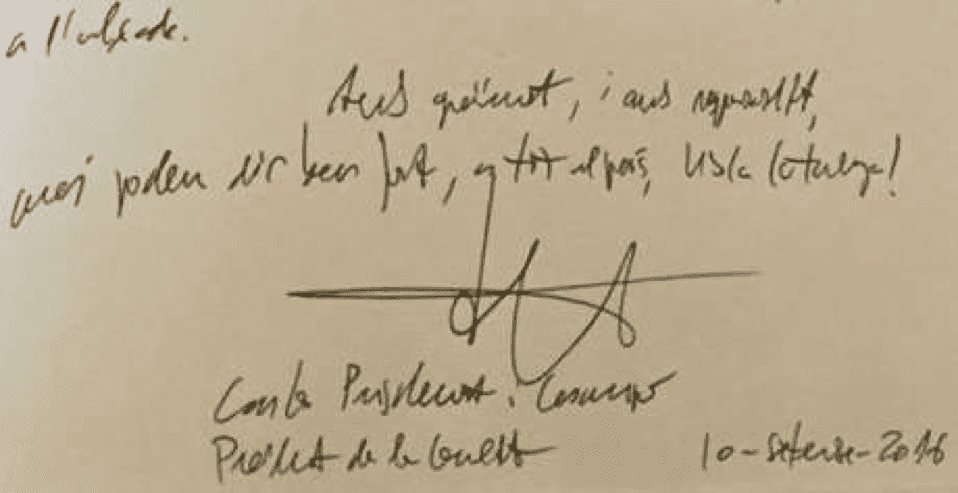 a l'alçada.
Amb gratitud, i amb respecte,
avui podem dir ben fort, a tot el país, Visca Catalunya!
Carles Puigdemont i Casamajó
President de la Generalitat 10-setembre-2016